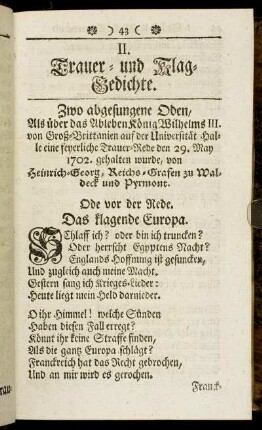 ) 43 (
II.
Trauer- und Klag-
Gedichte.
Zwo abgesungene Oden,
Als über das Ableben König Wilhelms III.
von Groß-Brittanien auf der Universität Hal-
le eine feyerliche Trauer-Rede den 29. May
1702. gehalten wurde, von
Heinrich-Georg, Reichs-Grafen zu Wal-
deck und Pyrmont.
Ode vor der Rede.
Das klagende Europa.
SChlaff ich? oder bin ich truncken?
Oder herrscht Egyptens Nacht?
Englands Hoffnung ist gesuncken,
Und zugleich auch meine Macht.
Gestern sang ich Krieges-Lieder:
Heute liegt mein Held darnieder.
O ihr Himmel! welche Sünden
Haben diesen Fall erregt?
Könnt ihr keine Straffe finden,
Als die gantz Europa schlägt?
Franckreich hat das Recht gebrochen,
Und an mir wird es gerochen.
Franck-